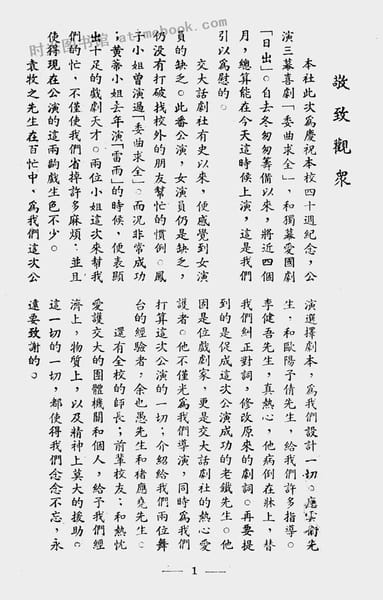 敬致觀眾
本社此次為慶祝本校四十週紀念，公
演三幕喜劇「委曲求全」，和獨幕愛國劇
「日出」。自去冬匆匆籌備以來，將近四個
月，總算能在今天這時候上演，這是我們
引以為慰的。
交大話劇社有史以來，便感覺到女演
員的缺乏。此番公演，女演員仍是缺乏，
仍沒有打破找校外的朋友幫忙的慣例。鳳
子小姐曾演過「委曲求全」。而況非常成功
；黃蒂小姐去年演「雷雨」的時候，便表顯
出十足的戲劇天才。兩位小姐這次來幫我
們的忙，不僅使我們省掉許多麻煩：並且
使得現在公演的這兩齣戲生色不少。
袁牧之先生在百忙中，為我們這次公
演選擇劇本，為我們設計一切。應雲衛先
生，和歐陽予倩先生，給我們許多指導。
李健吾先生，真熱心，他病倒在牀上，替
我們糾正對詞，修改原來的劇詞。再要提
到的是促成這次公演成功的老鐵先生。他
固是位戲劇家，更是交大話劇社的熱心愛
護者。他不僅光為我們導演，同時為我們
打算這次公演的一切；介紹給我們兩位舞
台的經驗者，余也愚先生和猪應堯先生。
還有全校的師長；前輩校友；和熱忱
愛護交大的團體機關和個人，給予我們經
濟上，物質上，以及精神上莫大的援助。
這一切的一切，都使得我們念念不忘，永
遠要致謝的。
— 1 —